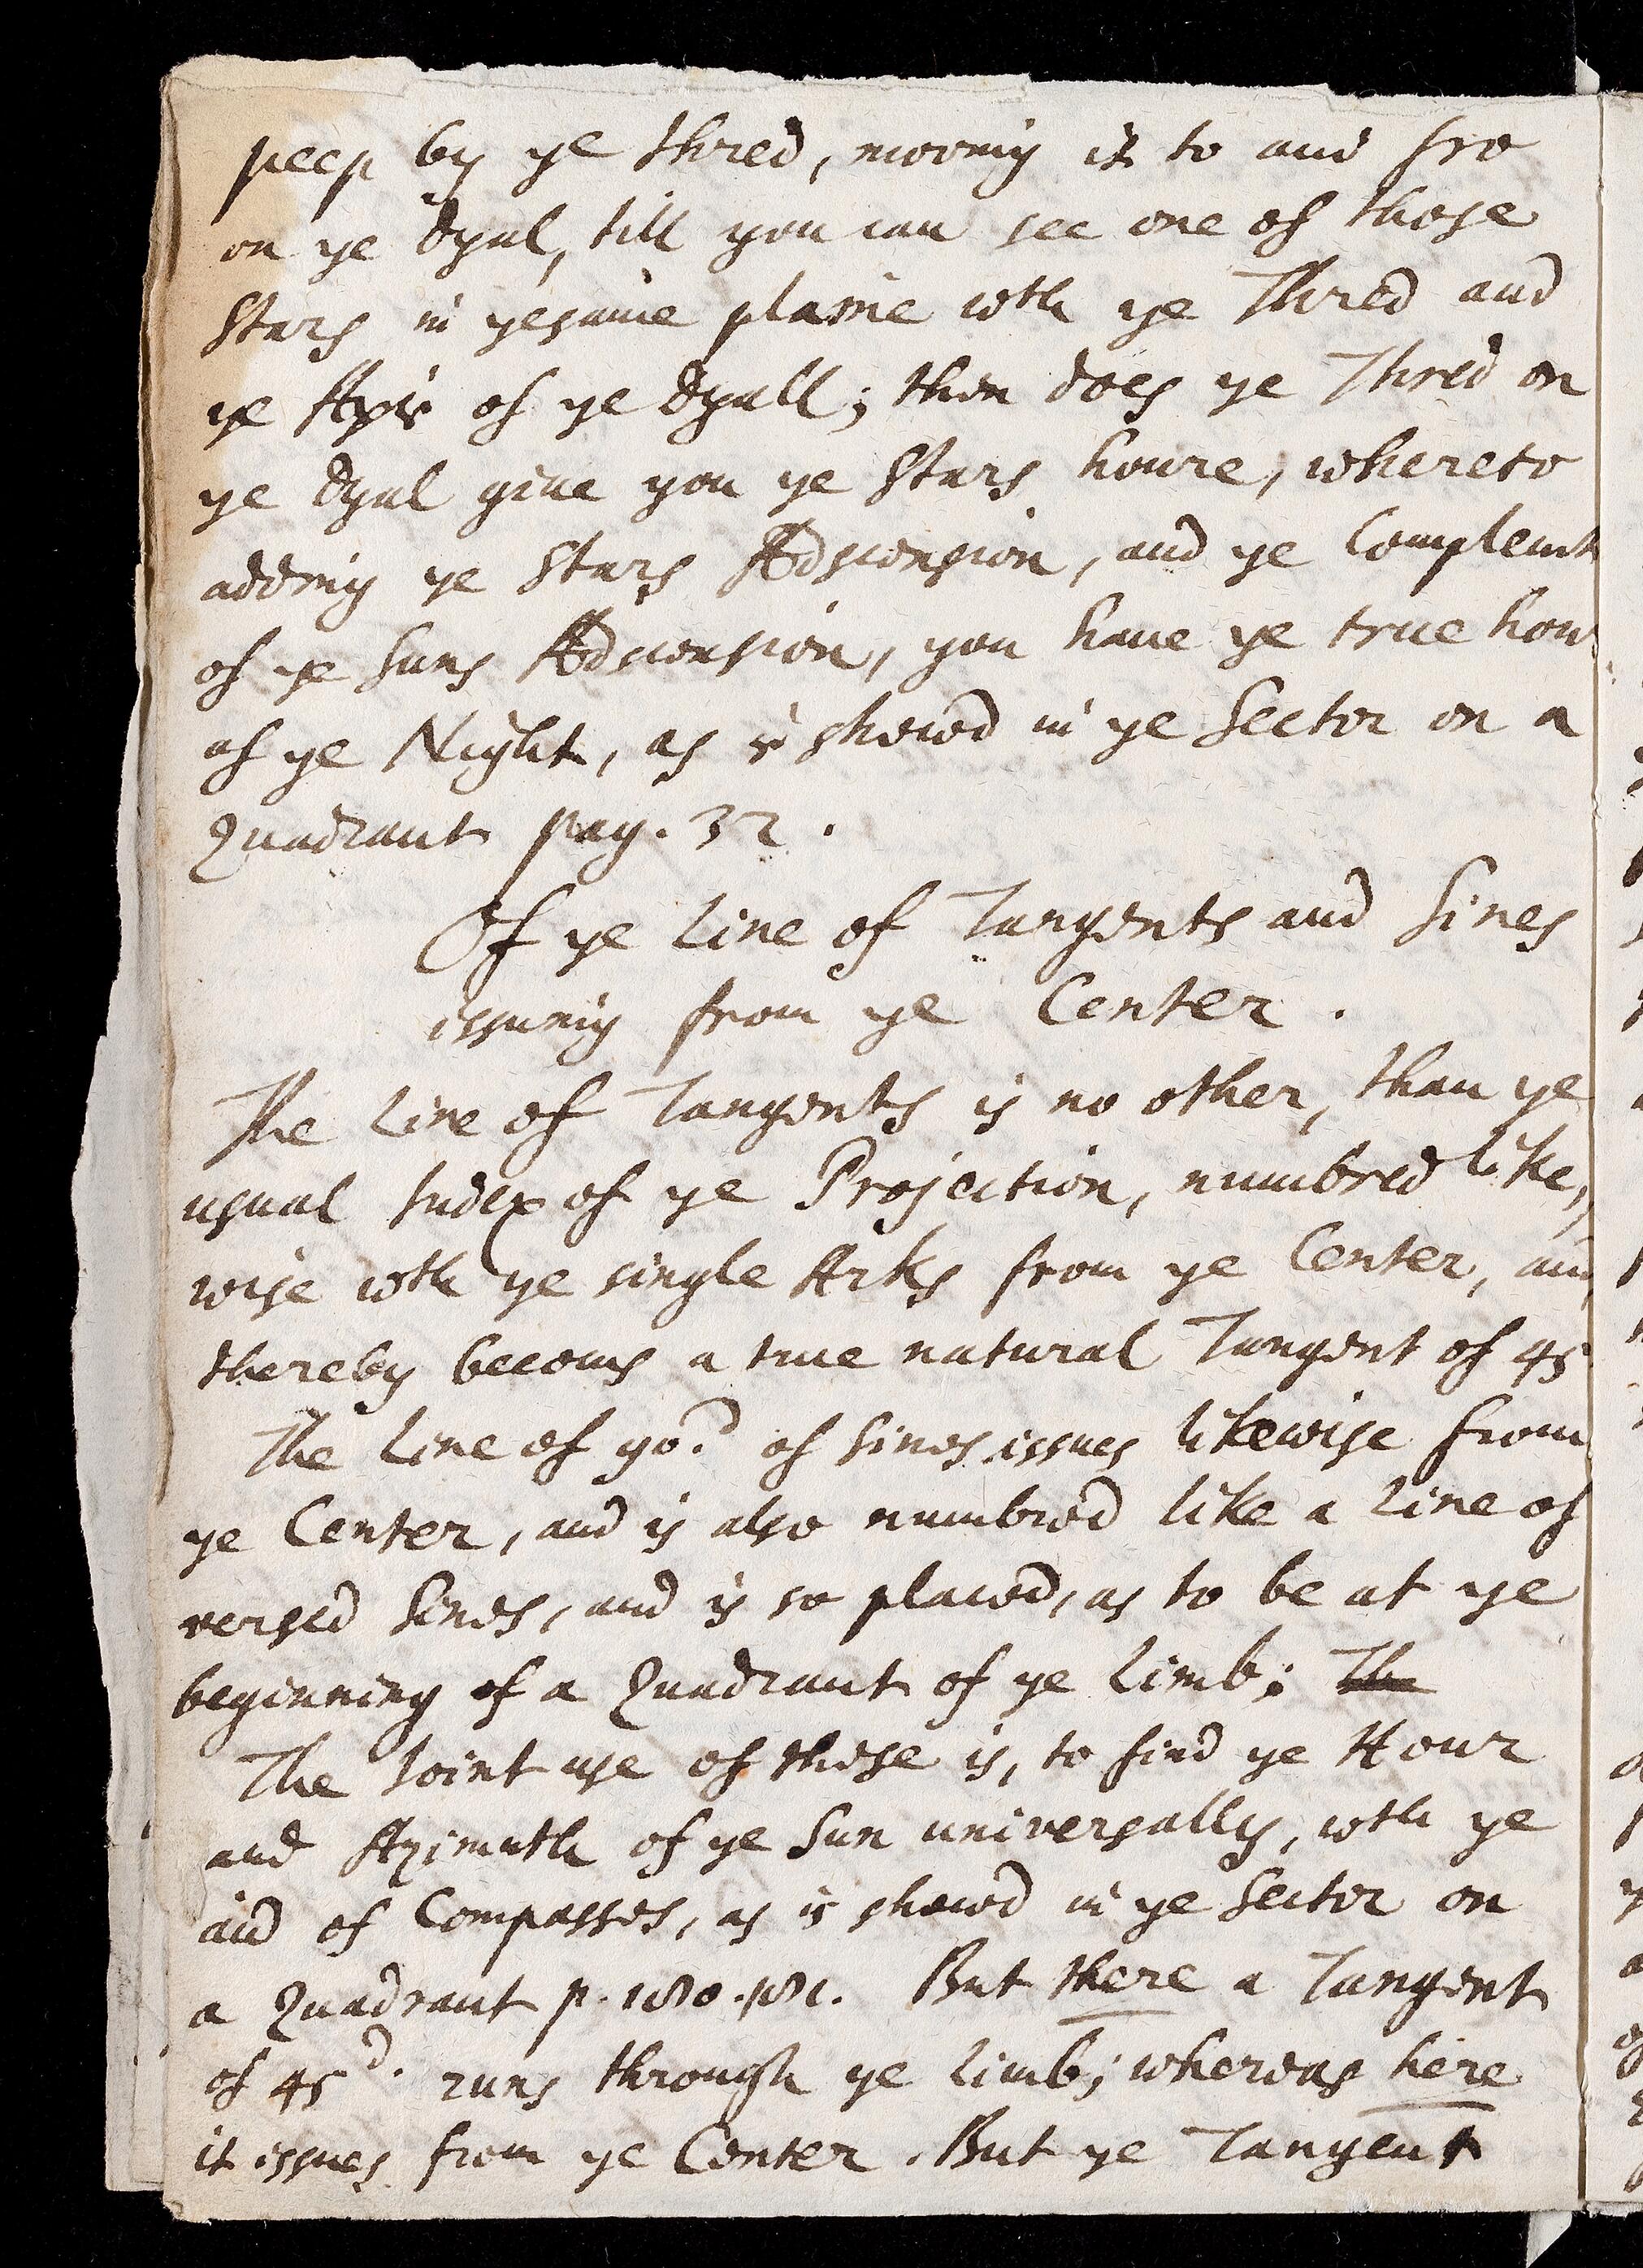 peep by ye thred, moving it to and fro
on ye Dyal, till you can see one of those
Stars in ye same plaine wth ye Thred and
ye Axis of ye Dyall; then does ye Thred on
ye Dyal give you ye Stars houre, whereto
adding ye Stars Adscension, and ye Complemt
of ye Suns Adscension, you have ye true hour
of ye Night, as is shewed in ye Sector on a
Quadrant pag. 32.
Of ye Line of Tangents and Sines
issuing from ye Center.
The Line of Tangents is no other, than ye
usual Index of ye Projection, numbred like,
wise wth ye single Arks from ye Center, and
thereby becoms a true natural Tangent of 45
The Line of 90.d of Sines issues likewise from
ye Center, and is also numbred like a Line of
versed Sines, and is so placed, as to be at ye
beginning of a Quadrant of ye Limb; The
The Joint use of these is, to find ye Hour
and Azimuth of ye Sun universally, wth ye
aid of Compasses, as is shewed in ye Sector on
a Quadrant p. 180.181. But there a Tangent
of 45d. runs through ye limb; whereas here
it issues from ye Center. But ye Tangent